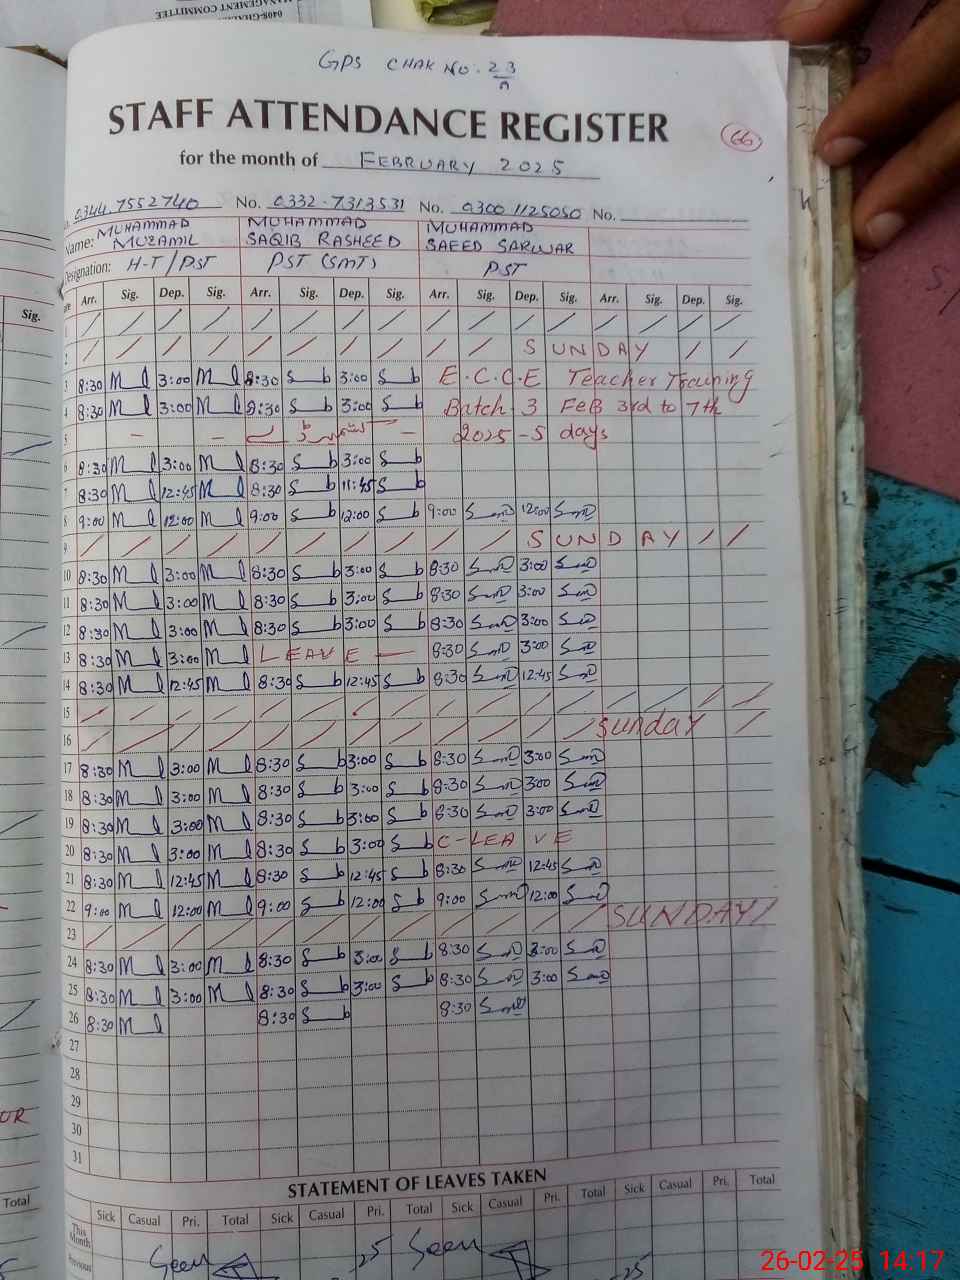 GPS CHAK NO. 23
STAFF ATTENDANCE REGISTER
66
for the month of FEBRUARY 2025
0344.7552740 No. 0332.7313531 No. 0300 1125050 No.
Name: MUHAMMAD MUZAMIL MUHAMMAD SAQIB RASHEED MUHAMMAD SAEED SARWAR
Designation: H-T/PST PST (SMT) PST
Arr. Sig. Dep. Sig. Arr. Sig. Dep. Sig. Arr. Sig. Dep. Sig. Arr. Sig. Dep. Sig.
1
2 SUNDAY
3 8:30 3:00 8:30 3:00 E.C.C.E Teacher Training
4 8:30 3:00 8:30 3:00 Batch 3 FeB 3rd to 7th
5 2025 - 5 days
6 8:30 3:00 8:30 3:00
7 8:30 12:45 8:30 11:45
8 9:00 12:00 9:00 12:00 9:00 12:00
9 SUNDAY
10 8:30 3:00 8:30 3:00 8:30 3:00
11 8:30 3:00 8:30 3:00 8:30 3:00
12 8:30 3:00 8:30 3:00 8:30 3:00
13 8:30 3:00 LEAVE 8:30 3:00
14 8:30 12:45 8:30 12:45 8:30 12:45
15
16 Sunday
17 8:30 3:00 8:30 3:00 8:30 3:00
18 8:30 3:00 8:30 3:00 8:30 3:00
19 8:30 3:00 8:30 3:00 8:30 3:00
20 8:30 3:00 8:30 3:00 C-LEAVE
21 8:30 12:45 8:30 12:45 8:30 12:45
22 9:00 12:00 9:00 12:00 9:00 12:00
23 SUNDAY
24 8:30 3:00 8:30 3:00 8:30 3:00
25 8:30 3:00 8:30 3:00 8:30 3:00
26 8:30 8:30 8:30
27
28
29
30
31
STATEMENT OF LEAVES TAKEN
Sick Casual Pri. Total Sick Casual Pri. Total Sick Casual Pri. Total Sick Casual Pri. Total
This Month
Seen Seen
Sig.
Total
26-02-25 14:17